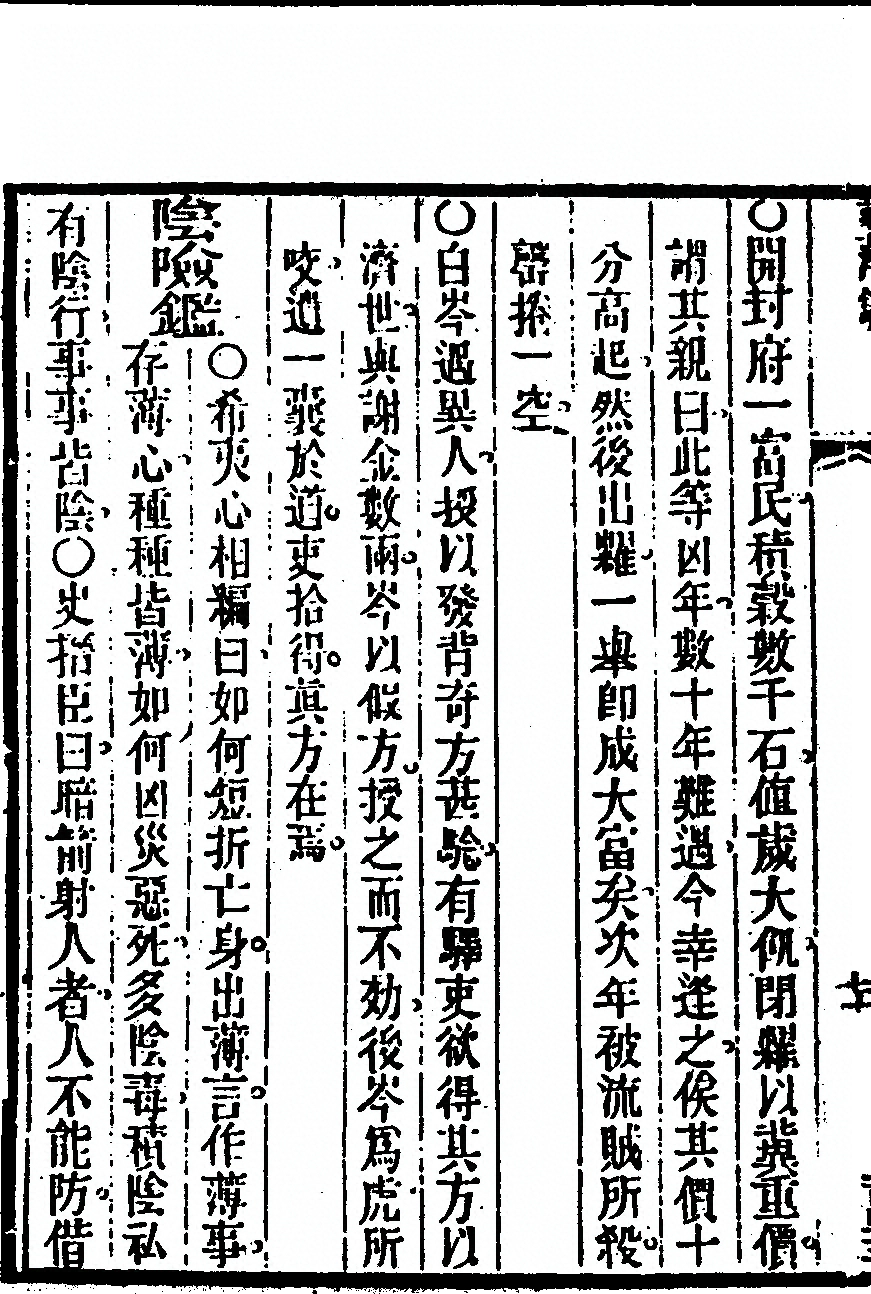 〇開封府一富民積穀數千石値歲大飢閉糶以冀重價
謂其親曰此等凶年數十年難遇今幸逢之俟其價十
分高起然後出糶一舉卽成大富矣次年被流賊所殺
罄捲一空
〇白岑遇異人授以發背奇方甚驗有驛吏欲得其方以
濟世與謝金數兩岑以假方授之而不効後岑爲虎所
咬遺一囊於道吏拾得眞方在焉
陰險鑑
〇希夷心相編曰如何短折亡身出薄言作薄事
存薄心種種皆薄如何凶災惡死多陰毒積陰私
有陰行事事皆陰〇史搢臣曰暗箭射人者人不能防借